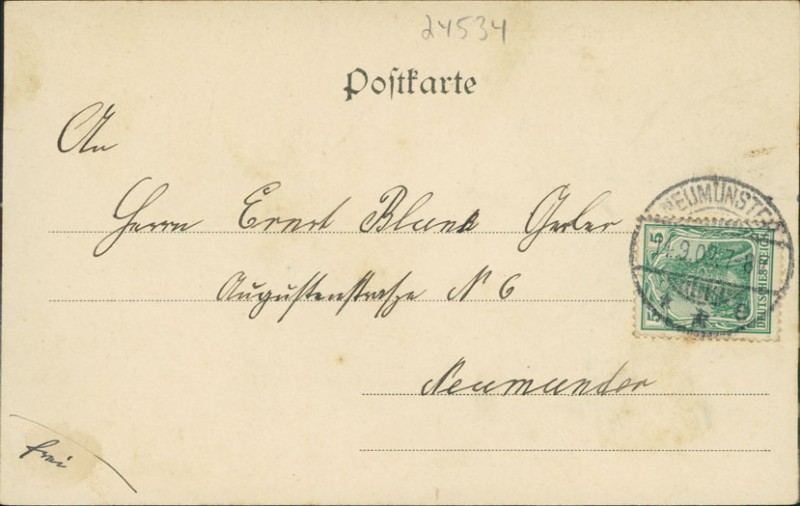 24534
Postkarte
An
Herrn Ernst Blunk Gerber
Augustenstraße N 6
Neumünster
frei
NEUMÜNSTER
5 5
DEUTSCHES REICH